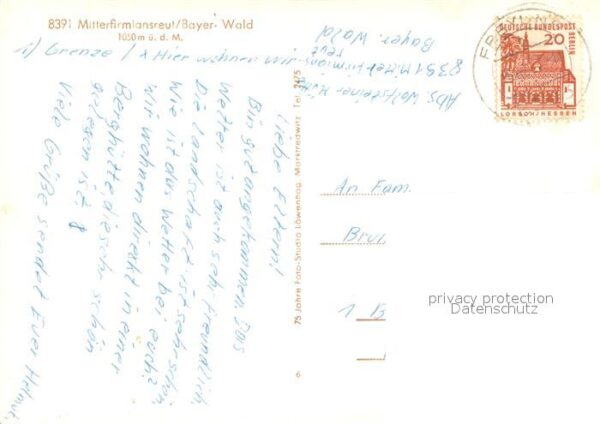 8391 Mitterfirmiansreut/Bayer. Wald
1050 m ü. d. M.
1) Grenze / x Hier wohnen wir
Abs. Wolfsteiner Hütte
8391 Mitterfirmians-
reut
Bayer. Wald
Liebe Eltern!
Bin gut angekommen. Das
Wetter ist auch sehr freundlich.
Die Landschaft ist sehr schön.
Wie ist das Wetter bei euch?
Wir wohnen direkt in einer
Berghütte die sehr schön
gelegen ist.
Viele Grüße sendet Euer Helmut.
75 Jahre Foto-Studio Löwenhag, Marktredwitz Tel. 2475
6
DEUTSCHE BUNDESPOST
BERLIN
20
LORSCH/HESSEN
FREYUNG
An Fam.
1 B
privacy protection
Datenschutz